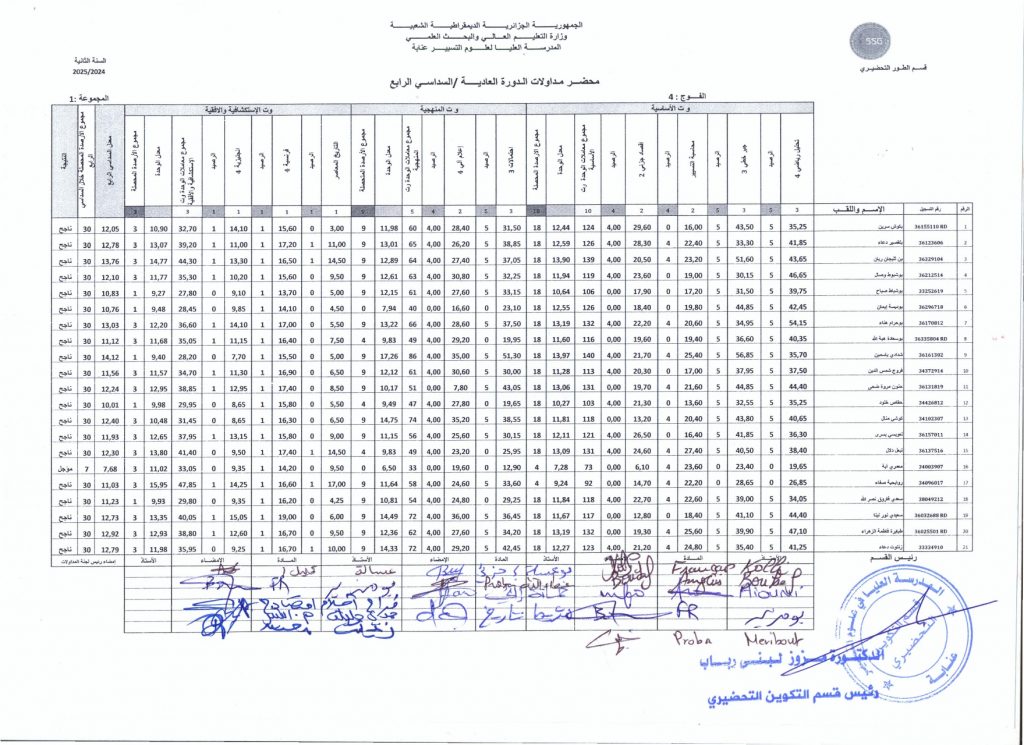 الجمهوريـــة الجزائريـــة الديمقراطيـة الشعبيـــة
وزارة التعليـــم العــالي والبحث العلمـــي
المدرســة العليــا لعلوم التسيير عنابة
SSG
قسم الطور التحضيري
السنة الثانية
2025/2024
محضـر مـداولات الدورة العاديـــة /السداسـي الرابع
الفـــوج : 4
المجموعة :1
وت الأساسية
و ت المنهجية
وت الإستكشافية والأفقية
تحليل رياضي 4
الرصيد
جبر خطي 3
الرصيد
محاسبة التسيير
الرصيد
إقتصاد جزئي 2
الرصيد
مجموع معاملات الوحدة وت الأساسية
معدل الوحدة
مجموع الأرصدة المحصلة
احتمالات 3
الرصيد
إعلام آلي 4
الرصيد
مجموع معاملات الوحدة المنهجية وت
معدل الوحدة
مجموع الأرصدة المتحصلة
التاريخ المعاصر
الرصيد
فرنسية 4
الرصيد
انجليزية 4
الرصيد
مجموع معاملات الوحدة وت الإستكشافية والأفقية
معدل الوحدة
مجموع الأرصدة المحصلة
معدل السداسي الرابع
مجموع الأرصدة المحصلة خلال السداسي الرابع
النتيجة
الرقم رقم التسجيل الاسـم واللقـب 3 5 3 5 2 4 2 4 10 18 3 5 2 4 5 9 1 1 1 1 1 1 3 3
1 36155110 RD 35,25 5 43,50 5 16,00 0 29,60 4,00 124 12,44 18 31,50 5 28,40 4,00 60 11,98 9 3,00 0 15,60 1 14,10 1 32,70 10,90 3 12,05 30 ناجح
2 36123606 بلقصير دعاء 41,85 5 33,30 5 22,40 4 28,30 4,00 126 12,59 18 38,85 5 26,20 4,00 65 13,01 9 11,00 1 17,20 1 11,00 1 39,20 13,07 3 12,78 30 ناجح
3 36329104 43,65 5 51,60 5 23,20 4 20,50 4,00 139 13,90 18 37,05 5 27,40 4,00 64 12,89 9 14,50 1 16,50 1 13,30 1 44,30 14,77 3 13,76 30 ناجح
4 36212514 بوشبوط وصال 46,65 5 30,15 5 19,00 0 23,60 4,00 119 11,94 18 32,25 5 30,80 4,00 63 12,61 9 9,50 0 15,60 1 10,20 1 35,30 11,77 3 12,10 30 ناجح
5 33252619 بوشباط صباح 39,75 5 31,50 5 17,20 0 17,90 0,00 106 10,64 18 33,15 5 27,60 4,00 61 12,15 9 5,00 0 13,70 1 9,10 0 27,80 9,27 1 10,83 30 ناجح
6 36296718 بونيسة إيمان 42,45 5 44,85 5 19,80 0 18,40 0,00 126 12,55 18 23,10 0 16,60 0,00 40 7,94 0 4,50 0 14,10 1 9,85 0 28,45 9,48 1 10,76 30 ناجح
7 36170812 بوحرام هناء 54,15 5 34,95 5 20,60 4 22,20 4,00 132 13,19 18 37,50 5 28,60 4,00 66 13,22 9 5,50 0 17,00 1 14,10 1 36,60 12,20 3 13,03 30 ناجح
8 36335804 RD بوسعدة هبة الله 40,35 5 36,60 5 19,40 0 19,60 0,00 116 11,60 18 19,95 0 29,20 4,00 49 9,83 4 7,50 0 16,40 1 11,15 1 35,05 11,68 3 11,12 30 ناجح
9 36161302 شمادي ياسمين 35,70 5 56,85 5 25,40 4 21,70 4,00 140 13,97 18 51,30 5 35,00 4,00 86 17,26 9 5,00 0 15,50 1 7,70 0 28,20 9,40 1 14,12 30 ناجح
10 34372914 فروج شمس الدين 37,50 5 37,95 5 17,00 0 20,30 4,00 113 11,28 18 30,00 5 30,60 4,00 61 12,12 9 6,50 0 16,90 1 11,30 1 34,70 11,57 3 11,56 30 ناجح
11 36131819 حنون مروة ضحى 44,40 5 44,85 5 21,60 4 19,70 0,00 131 13,06 18 43,05 5 7,80 0,00 51 10,17 9 8,50 0 17,40 1 12,95 1 38,85 12,95 3 12,24 30 ناجح
12 34426812 حفاص خلود 35,25 5 32,55 5 13,60 0 21,30 4,00 103 10,27 18 19,65 0 27,80 4,00 47 9,49 4 5,50 0 15,80 1 8,65 0 29,95 9,98 1 10,01 30 ناجح
13 34102307 كوشي منال 40,65 5 43,80 5 20,40 4 13,20 0,00 118 11,81 18 38,55 5 35,20 4,00 74 14,75 9 6,50 0 16,30 1 8,65 0 31,45 10,48 3 12,40 30 ناجح
14 36157011 لعويسي يسرى 36,30 5 41,85 5 16,40 0 26,50 4,00 121 12,11 18 30,15 5 25,60 4,00 56 11,15 9 9,00 0 15,80 1 13,15 1 37,95 12,65 3 11,93 30 ناجح
15 36137516 ليعل دلال 38,40 5 40,50 5 27,40 4 24,60 4,00 131 13,09 18 25,95 0 23,20 4,00 49 9,83 4 14,50 1 17,40 1 9,50 0 41,40 13,80 3 12,30 30 ناجح
16 34003907 معمري اية 19,65 0 23,40 0 23,60 4 6,10 0,00 73 7,28 4 12,90 0 19,60 0,00 33 6,50 0 9,50 0 14,20 1 9,35 0 33,05 11,02 3 7,68 7 مؤجل
17 34096017 روابحية صفاء 26,85 0 28,65 0 22,20 4 14,70 0,00 92 9,24 4 33,60 5 24,60 4,00 58 11,64 9 17,00 1 16,60 1 14,25 1 47,85 15,95 3 11,03 30 ناجح
18 38049212 سعدي فاروق نصر الله 34,05 5 39,00 5 22,60 4 22,70 4,00 118 11,84 18 29,25 5 24,80 4,00 54 10,81 9 4,25 0 16,20 1 9,35 0 29,80 9,93 1 11,23 30 ناجح
19 36032688 RD سعيدي نور لينا 44,40 5 41,10 5 18,40 0 12,80 0,00 117 11,67 18 36,45 5 36,00 4,00 72 14,49 9 6,00 0 19,00 1 15,05 1 40,05 13,35 3 12,73 30 ناجح
20 36025501 RD طبايبة فاطمة الزهراء 47,10 5 39,90 5 25,60 4 19,30 0,00 132 13,19 18 34,20 5 27,60 4,00 62 12,36 9 9,50 0 16,70 1 12,60 1 38,80 12,93 3 12,92 30 ناجح
21 33334910 زنتوت دعاء 41,25 5 35,40 5 24,80 4 21,20 4,00 123 12,27 18 42,45 5 29,20 4,00 72 14,33 9 10,00 1 16,70 1 9,25 0 35,95 11,98 3 12,79 30 ناجح
رئيـس القسـم
الأستاذ المادة الإمضاء الأستاذ المادة الإمضاء الأستاذ المادة الإمضاء الأستاذ
إمضاء رئيس لجنة المداولات
Français
Anglais
FR
Proba Meribout
الدكتـورة مزوز لبنـى ربـاب
رئيس قسم التكوين التحضيري